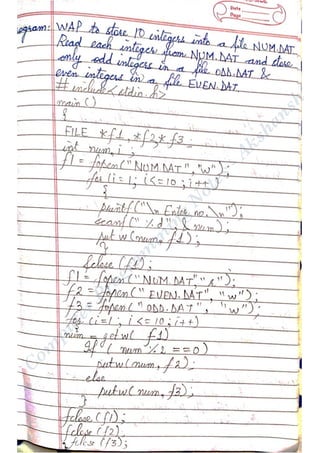 Date
Page
rogram: WAP to store 10 integers into a file NUM.DAT
Read each integer from NUM.DAT and store
only odd integers in a file ODD.DAT &
even integers in a file EVEN.DAT.
# include <stdio.h>
main ()
{
FILE *f1, *f2, *f3;
int num, i;
f1 = fopen("NUM.DAT", "w");
for (i=1; i<=10; i++)
{
printf("\n Enter no. \n");
scanf("%d", & num);
putw(num, f1);
}
fclose (f1);
f1 = fopen("NUM.DAT", "r");
f2 = fopen("EVEN.DAT", "w");
f3 = fopen("ODD.DAT", "w");
for (i=1; i<=10; i++)
num = getw( f1)
if ( num % 2 == 0)
putw( num, f2);
else
putw( num, f3);
}
fclose (f1);
fclose (f2)
} fclose (f3);